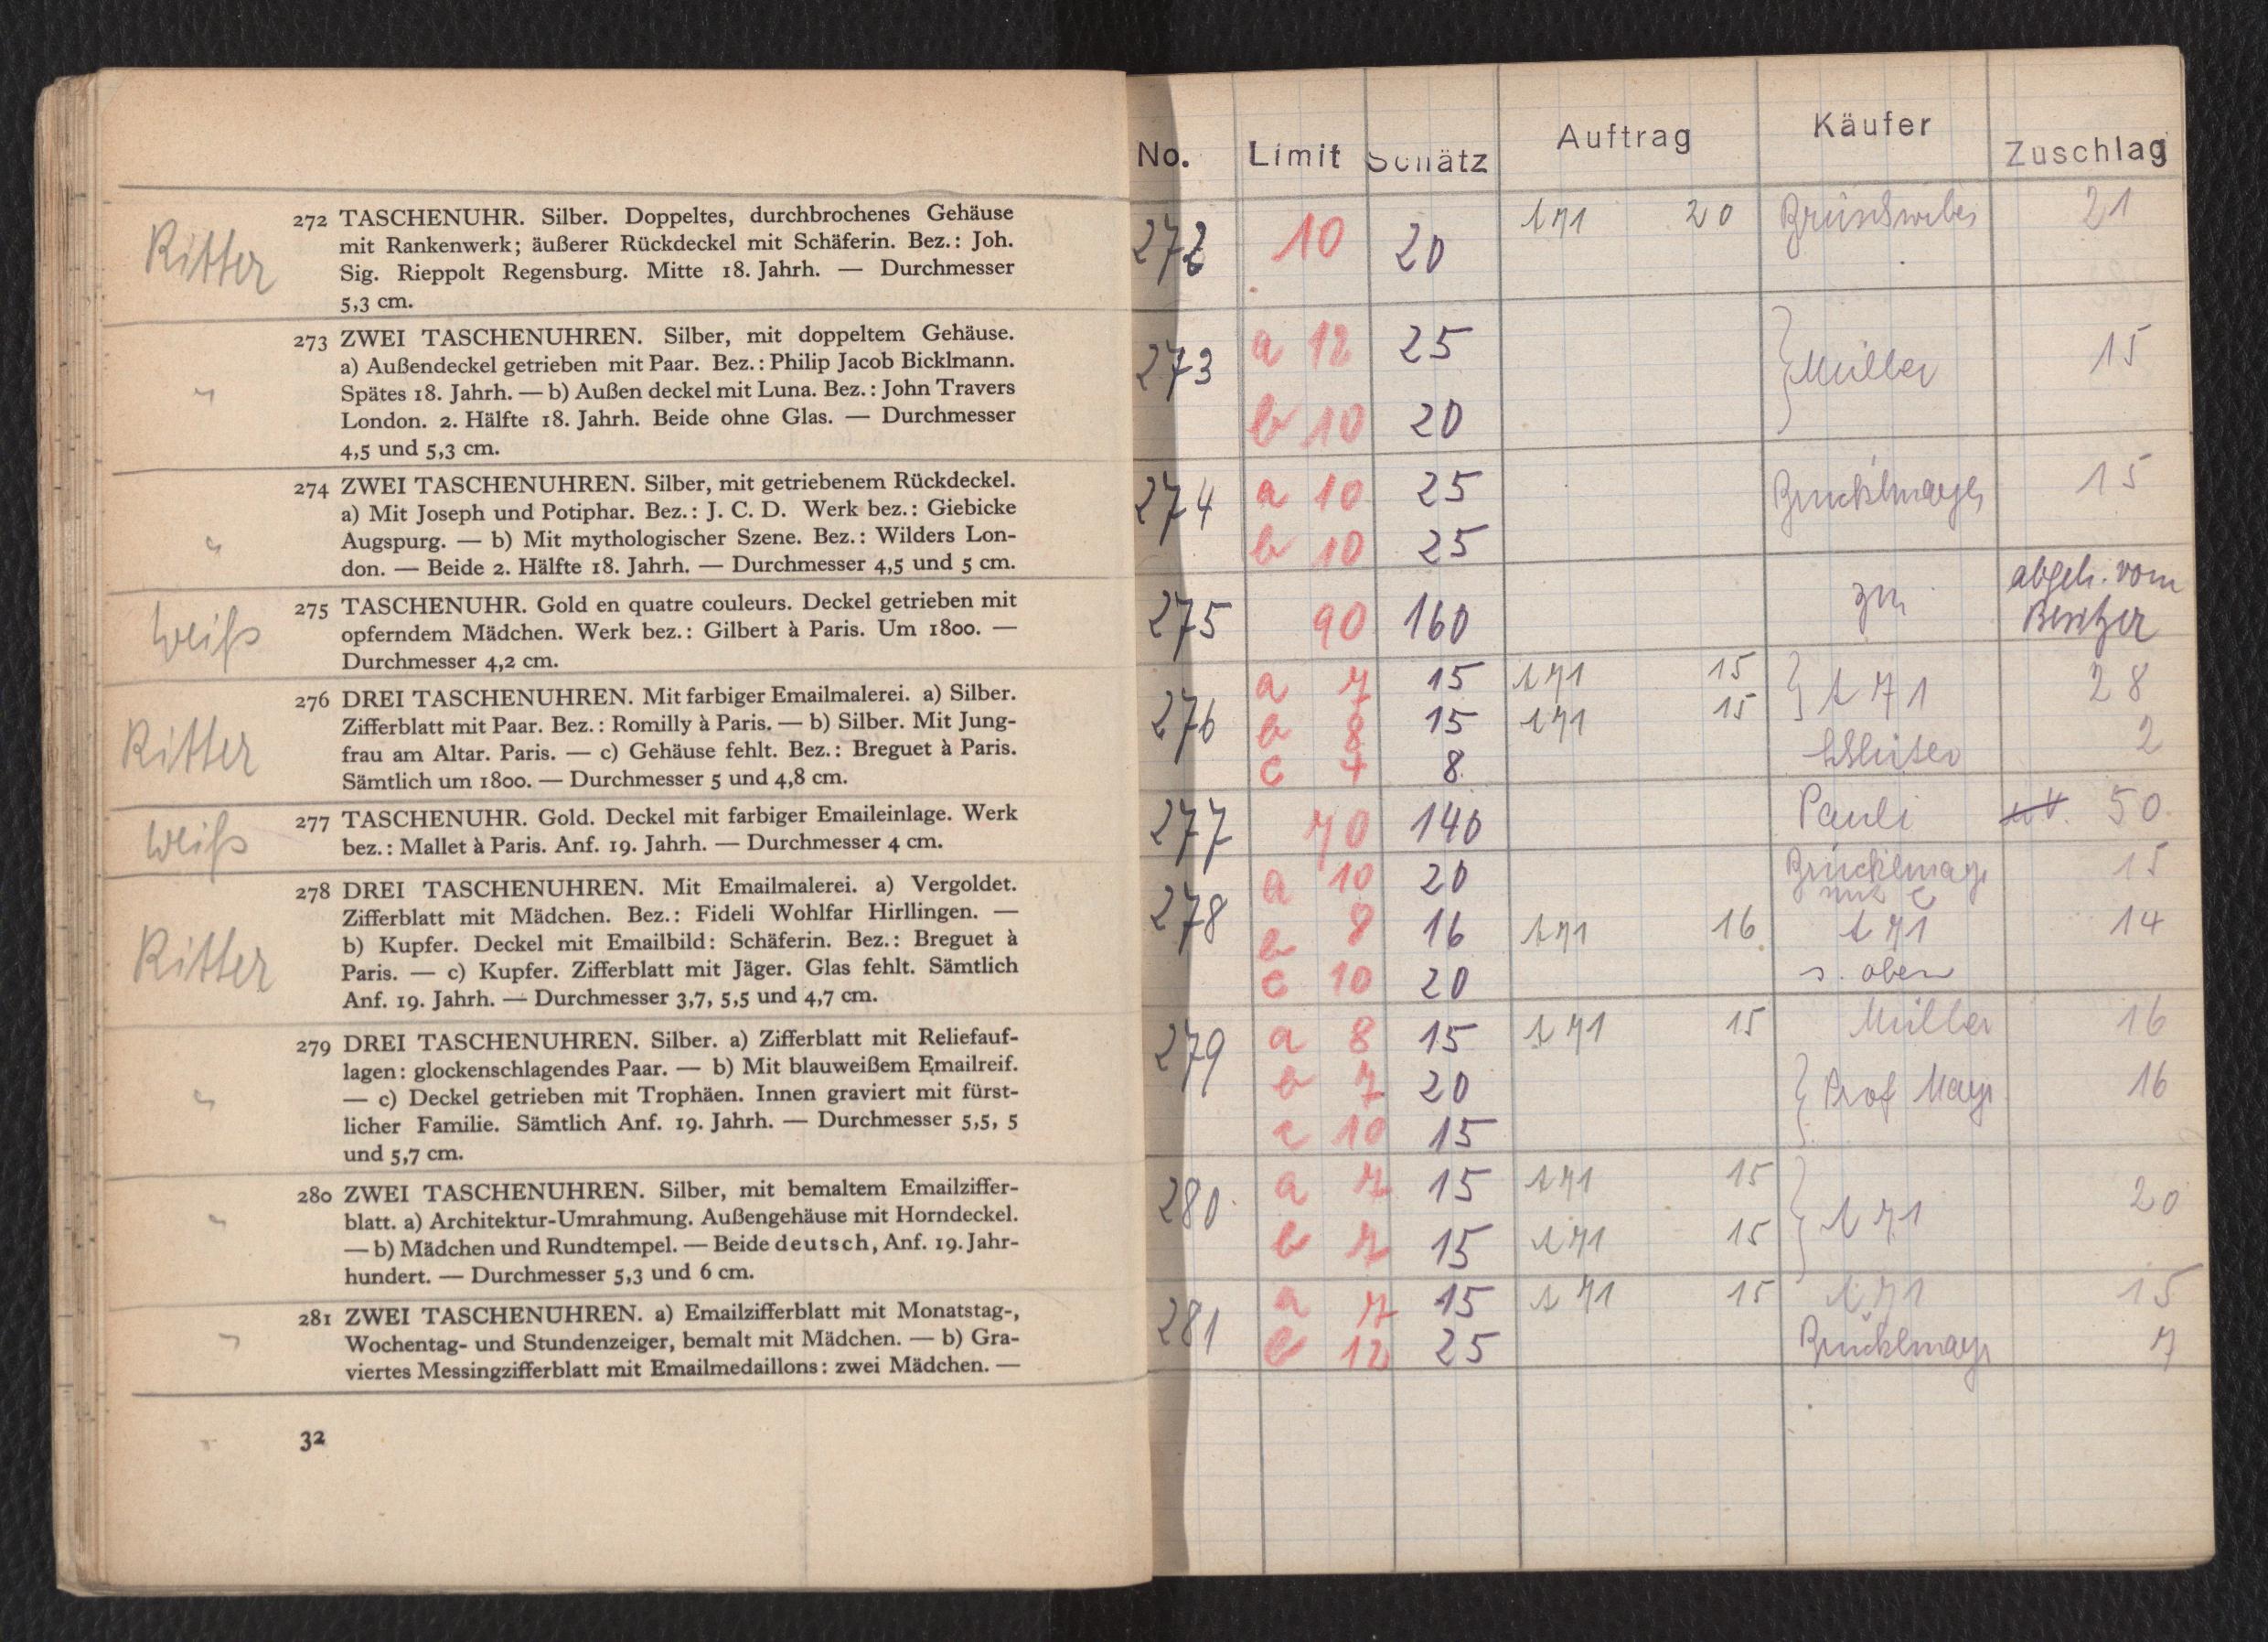 Ritter
272 TASCHENUHR. Silber. Doppeltes, durchbrochenes Gehäuse
mit Rankenwerk; äußerer Rückdeckel mit Schäferin. Bez.: Joh.
Sig. Rieppolt Regensburg. Mitte 18. Jahrh. — Durchmesser
5,3 cm.
"
273 ZWEI TASCHENUHREN. Silber, mit doppeltem Gehäuse.
a) Außendeckel getrieben mit Paar. Bez.: Philip Jacob Bicklmann.
Spätes 18. Jahrh. — b) Außen deckel mit Luna. Bez.: John Travers
London. 2. Hälfte 18. Jahrh. Beide ohne Glas. — Durchmesser
4,5 und 5,3 cm.
"
274 ZWEI TASCHENUHREN. Silber, mit getriebenem Rückdeckel.
a) Mit Joseph und Potiphar. Bez.: J. C. D. Werk bez.: Giebicke
Augspurg. — b) Mit mythologischer Szene. Bez.: Wilders Lon-
don. — Beide 2. Hälfte 18. Jahrh. — Durchmesser 4,5 und 5 cm.
Weiß
275 TASCHENUHR. Gold en quatre couleurs. Deckel getrieben mit
opferndem Mädchen. Werk bez.: Gilbert à Paris. Um 1800. —
Durchmesser 4,2 cm.
Ritter
276 DREI TASCHENUHREN. Mit farbiger Emailmalerei. a) Silber.
Zifferblatt mit Paar. Bez.: Romilly à Paris. — b) Silber. Mit Jung-
frau am Altar. Paris. — c) Gehäuse fehlt. Bez.: Breguet à Paris.
Sämtlich um 1800. — Durchmesser 5 und 4,8 cm.
Weiß
277 TASCHENUHR. Gold. Deckel mit farbiger Emaileinlage. Werk
bez.: Mallet à Paris. Anf. 19. Jahrh. — Durchmesser 4 cm.
Ritter
278 DREI TASCHENUHREN. Mit Emailmalerei. a) Vergoldet.
Zifferblatt mit Mädchen. Bez.: Fideli Wohlfar Hirllingen. —
b) Kupfer. Deckel mit Emailbild: Schäferin. Bez.: Breguet à
Paris. — c) Kupfer. Zifferblatt mit Jäger. Glas fehlt. Sämtlich
Anf. 19. Jahrh. — Durchmesser 3,7, 5,5 und 4,7 cm.
"
279 DREI TASCHENUHREN. Silber. a) Zifferblatt mit Reliefauf-
lagen: glockenschlagendes Paar. — b) Mit blauweißem Emailreif.
— c) Deckel getrieben mit Trophäen. Innen graviert mit fürst-
licher Familie. Sämtlich Anf. 19. Jahrh. — Durchmesser 5,5, 5
und 5,7 cm.
"
280 ZWEI TASCHENUHREN. Silber, mit bemaltem Emailziffer-
blatt. a) Architektur-Umrahmung. Außengehäuse mit Horndeckel.
— b) Mädchen und Rundtempel. — Beide deutsch, Anf. 19. Jahr-
hundert. — Durchmesser 5,3 und 6 cm.
"
281 ZWEI TASCHENUHREN. a) Emailzifferblatt mit Monatstag-,
Wochentag- und Stundenzeiger, bemalt mit Mädchen. — b) Gra-
viertes Messingzifferblatt mit Emailmedaillons: zwei Mädchen. —
32
No. Limit Schätz Auftrag Käufer Zuschlag
272 10 20 t 71 20 21
273 a 12 25 Müller 15
b 10 20
274 a 10 25 Brücklmayer 15
b 10 25
275 90 160 zu abgeh. vom
Besitzer
276 a 7 15 t 71 15 t 71 28
b 8 15 t 71 15
c 7 8 2
277 70 140 Pauli 50
278 a 10 20 Brücklmayr 15
mit c
b 8 16 t 71 16 t 71 14
c 10 20 s. oben
279 a 8 15 t 71 15 Müller 16
b 7 20 Prof Mayr 16
c 10 15
280 a 7 15 t 71 15 t 71 20
b 7 15 t 71 15
281 a 7 15 t 71 15 t 71 15
b 12 25 Brücklmayr 7